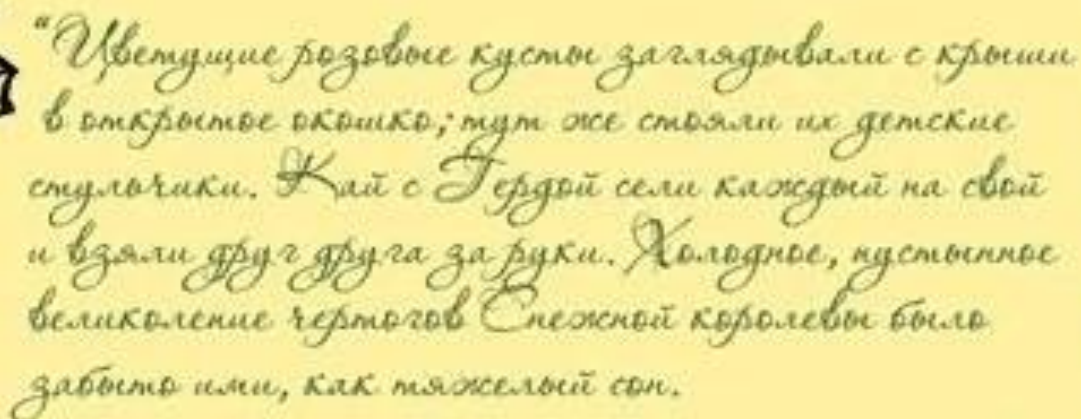 "Цветущие розовые кусты заглядывали с крыши
в открытое окошко; тут же стояли их детские
стульчики. Кай с Гердой сели каждый на свой
и взяли друг друга за руки. Холодное, пустынное
великолепие чертогов Снежной королевы было
забыто ими, как тяжелый сон.